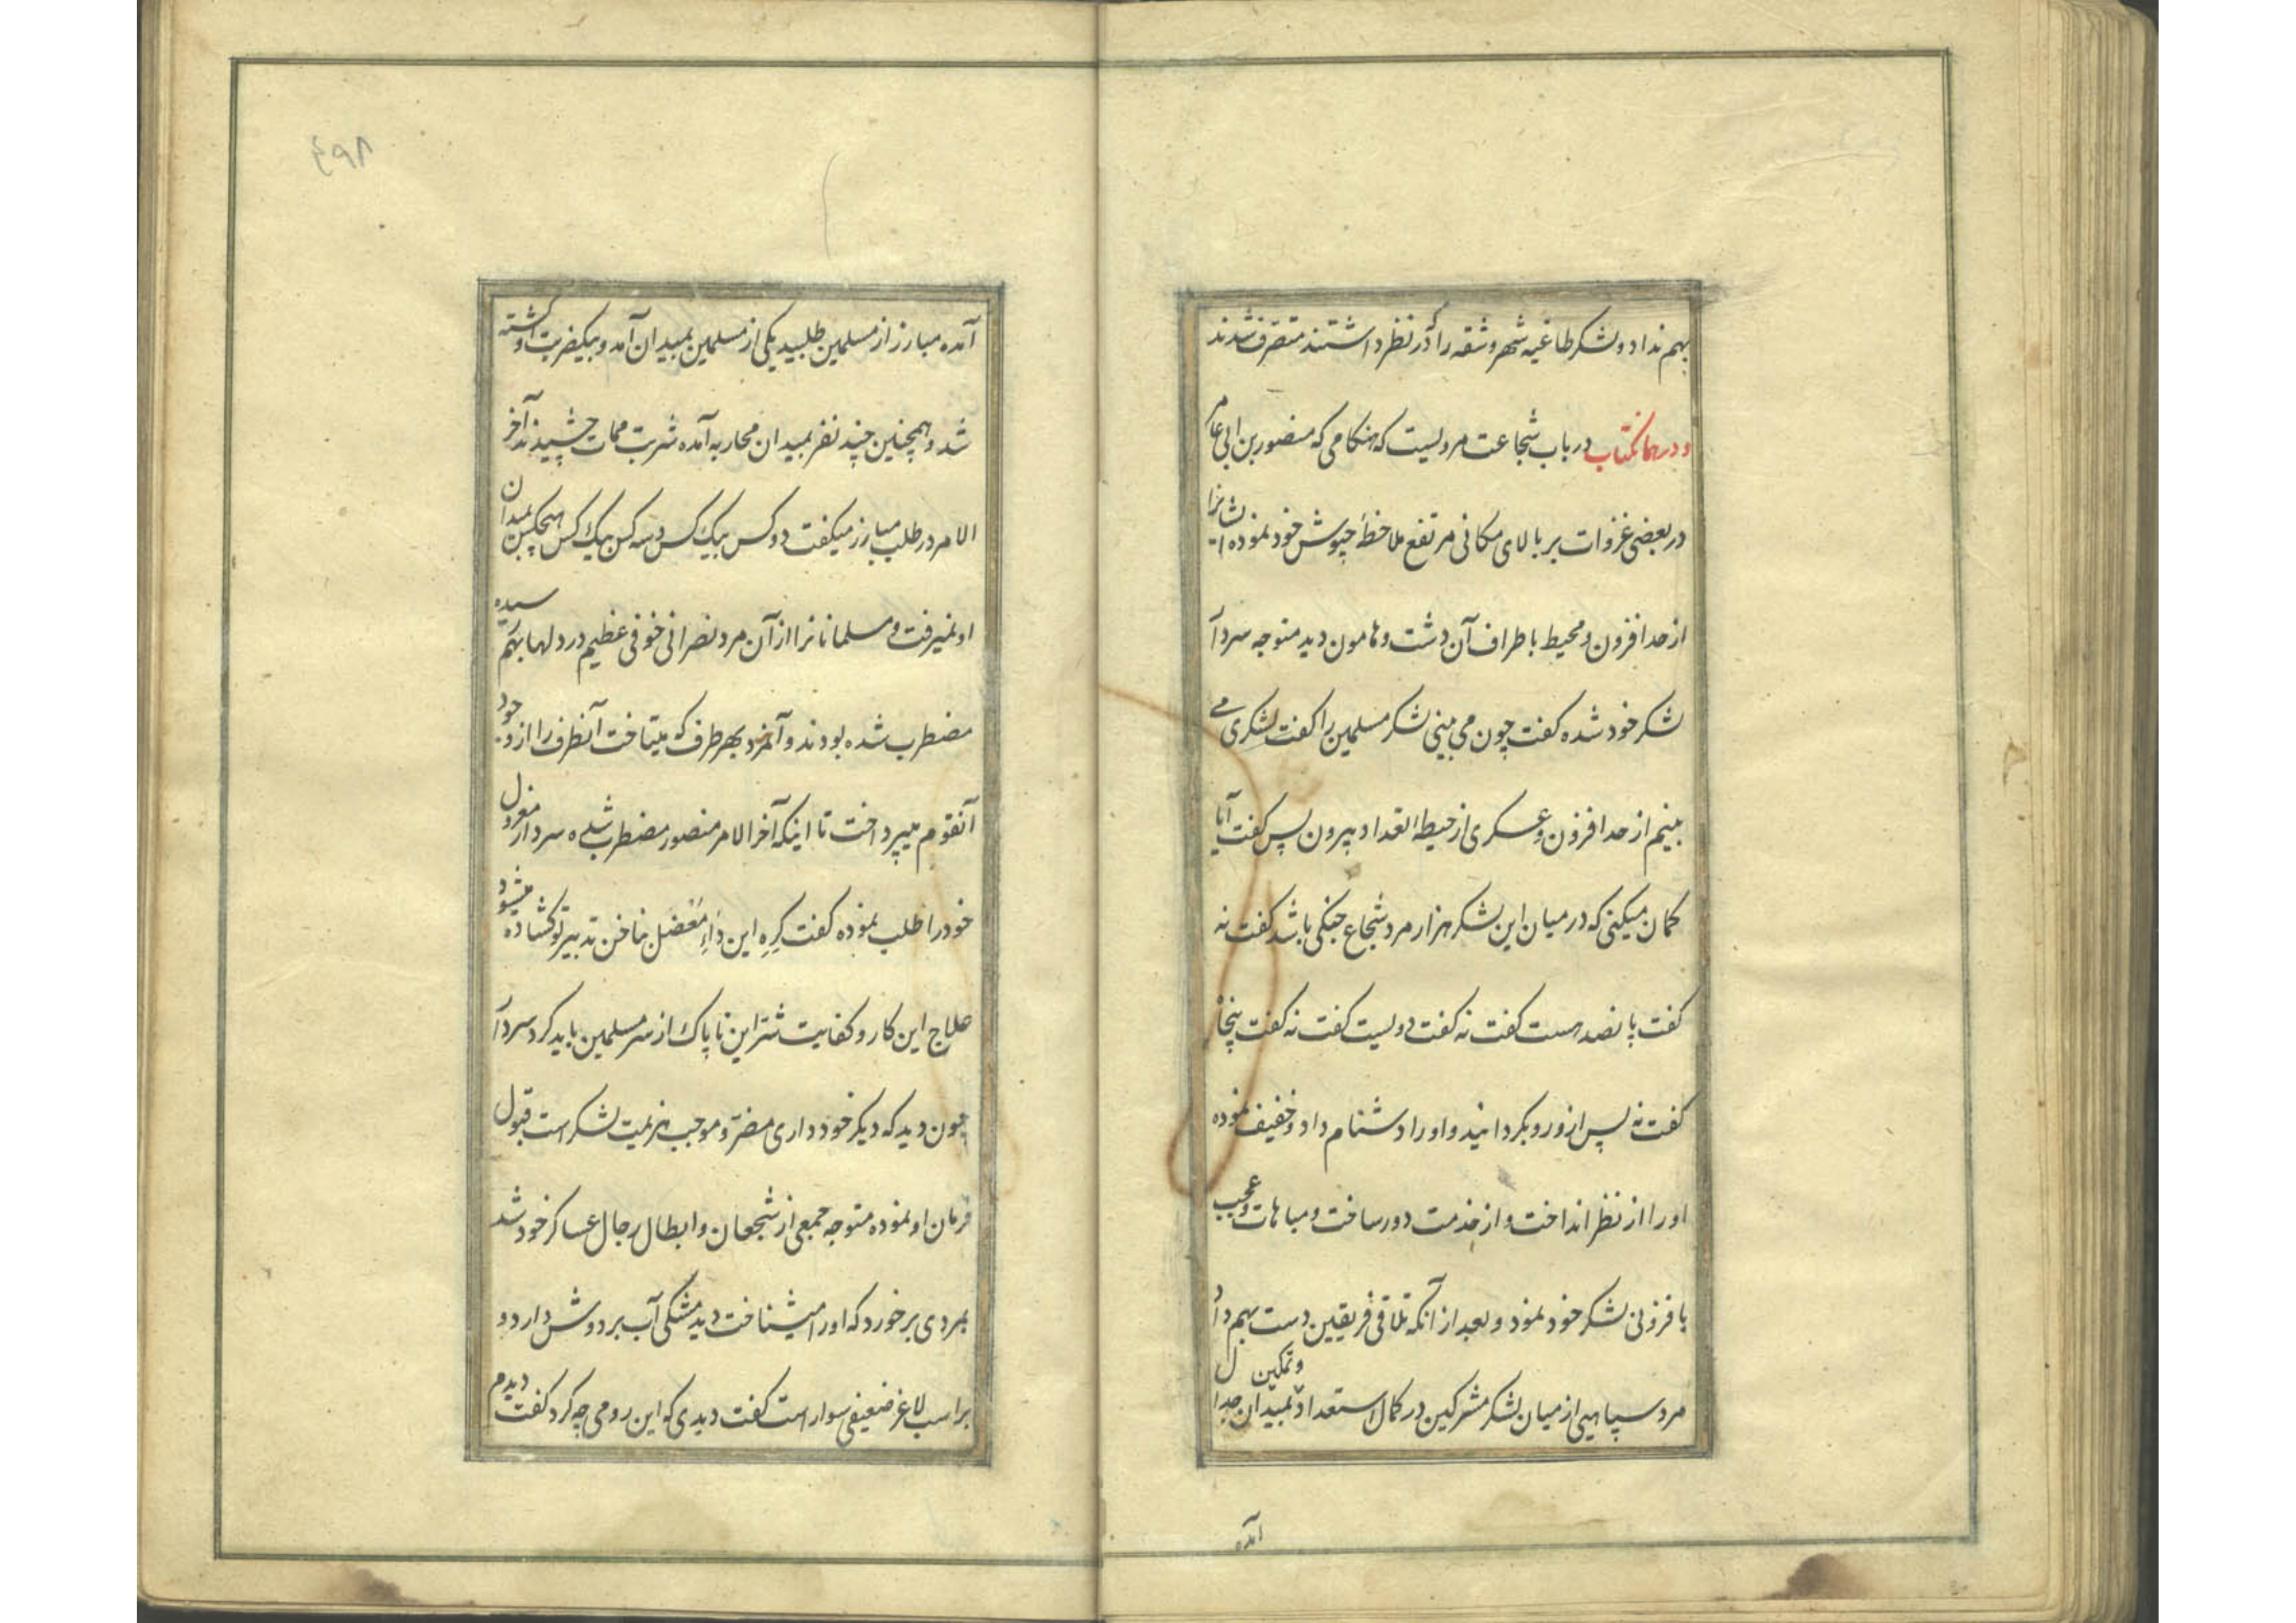 بهم نداد و لشکر طاغیه شهر وشقه را که در نظر داشتند متصرف شدند
و در همانکتاب در باب شجاعت مرویست که هنکامی که منصور بن ابی عامر
در بعضی غزوات بر بالای مکانی مرتفع ملاحظهٔ جیوش خود نموده ایشانرا
از حد افزون و محیط باطراف آن دشت و هامون دید متوجه سردار
لشکر خود شده کفت چون می بینی لشکر مسلمین را کفت لشکری می
بینم از حد افزون و عسکری از حیطهٔ تعداد بیرون پس کفت آیا
کمان میکنی که در میان این لشکر هزار مرد شجاع جنکی باشد کفت نه
کفت پانصد هست کفت نه کفت دویست کفت نه کفت پنجاه
کفت نه پس ازو رو بکردانید و او را دشنام داد و خفیف نموده
او را از نظر انداخت و از خدمت دور ساخت و مباهات و عجب
بافزونی لشکر خود نمود و بعد از آنکه تلاقی فریقین دست بهم داد
مرد سپاهیی از میان لشکر مشرکین در کمال استعداد و تمکین بمیدان جدال
آمده
٤٩٨
آمده مبارز از مسلمین طلبید یکی از مسلمین بمیدان آمد و بیکضربت او کشته
شد و همچنین چند نفر بمیدان محاربه آمده شربت ممات چشیدند آخر
الامر در طلب مبارز میکفت دو کس بیک کس و سه کس بیک کس هیچکس بمیدان
او نمیرفت و مسلمانانرا از آن مرد نصرانی خوفی عظیم در دلها بهم رسیده
مضطرب شده بودند و آنمرد بهر طرف که میتاخت آنطرف را از وجود
آنقوم میپرداخت تا اینکه آخر الامر منصور مضطرب شده سردار معزول
خود را طلب نموده کفت کره این داء معضل بناخن تدبیر تو کشاده میشود
علاج این کار و کفایت شر این ناپاک از سر مسلمین باید کرد سردار
چون دید که دیکر خود داری مضر و موجب هزیمت لشکر است قبول
فرمان او نموده متوجه جمعی از شجعان و ابطال رجال عساکر خود شد
بمردی بر خورد که او را میشناخت دید مشکی آب بر دوش دارد و
بر اسب لاغر ضعیفی سوار است کفت دیدی که این رومی چه کرد کفت دیدم